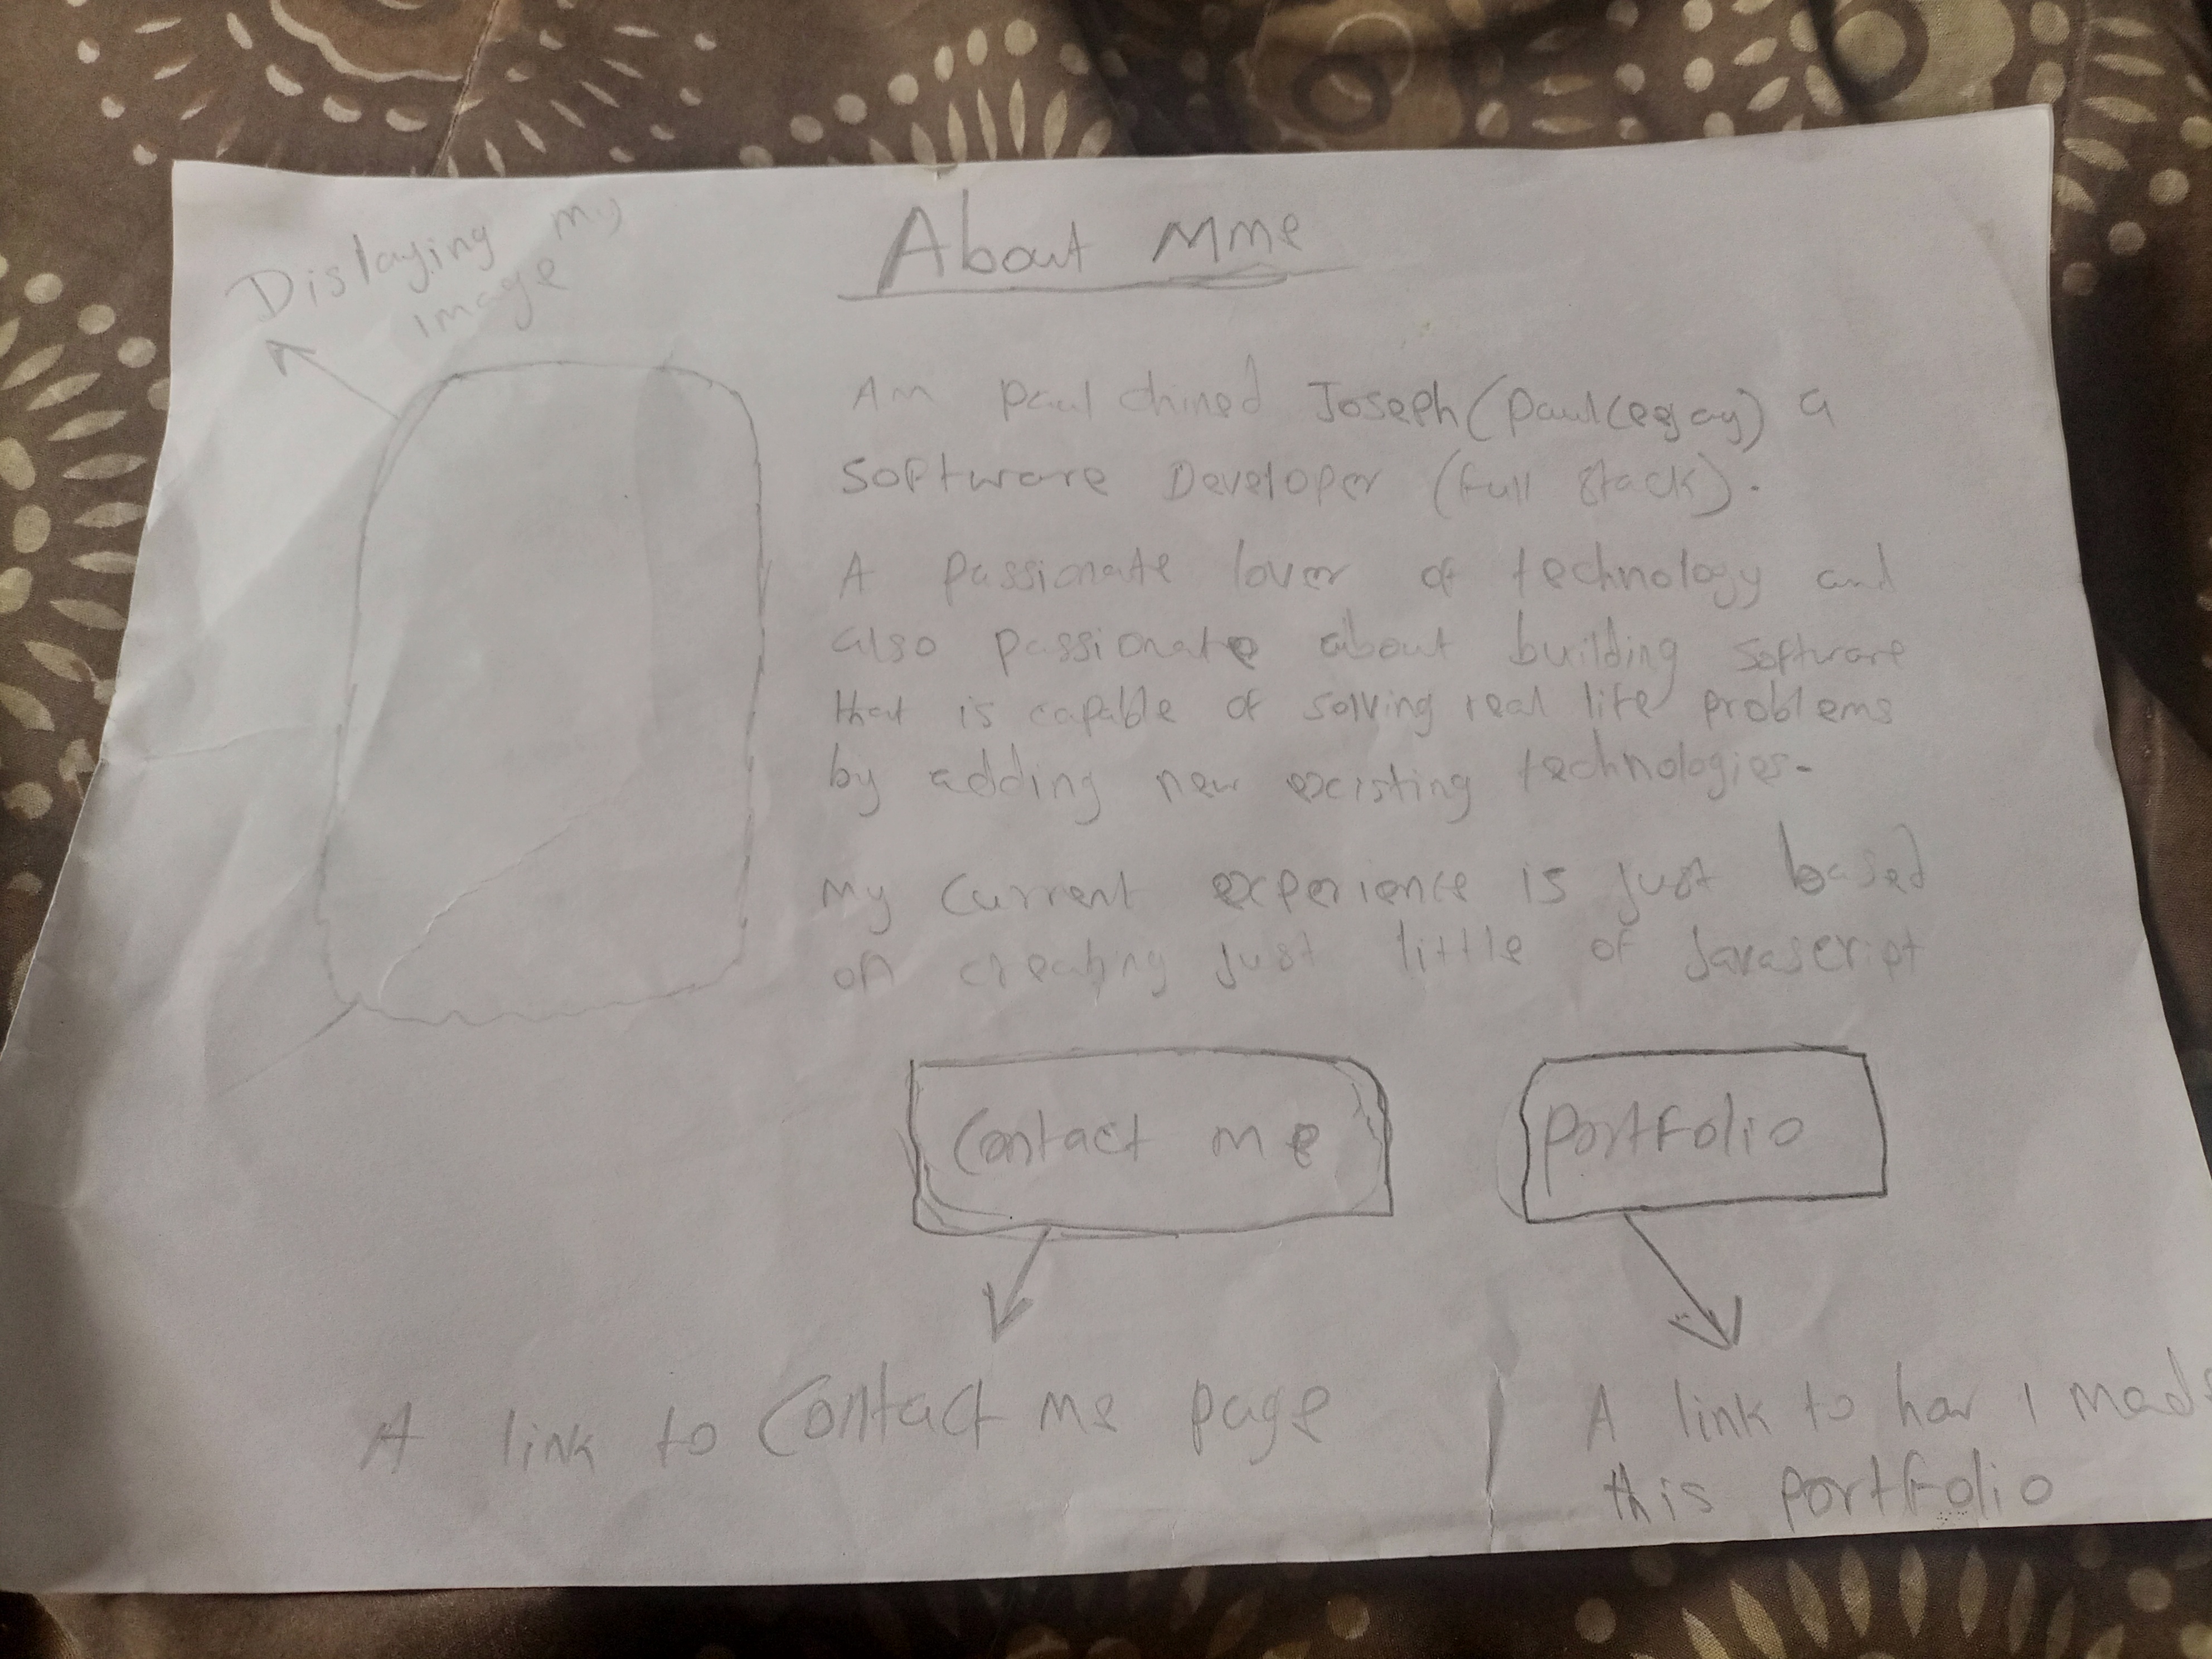 About Mme
Dislaying my
image
Am paul chined Joseph (paulcegay) a
Software Developer (full stack).
A passionate lover of technology and
also passionate about building software
that is capable of solving real life problems
by adding new existing technologies.
My current experience is just based
on creating just little of Javascript
Contact me
portfolio
A link to Contact me page
A link to how I made
this portfolio